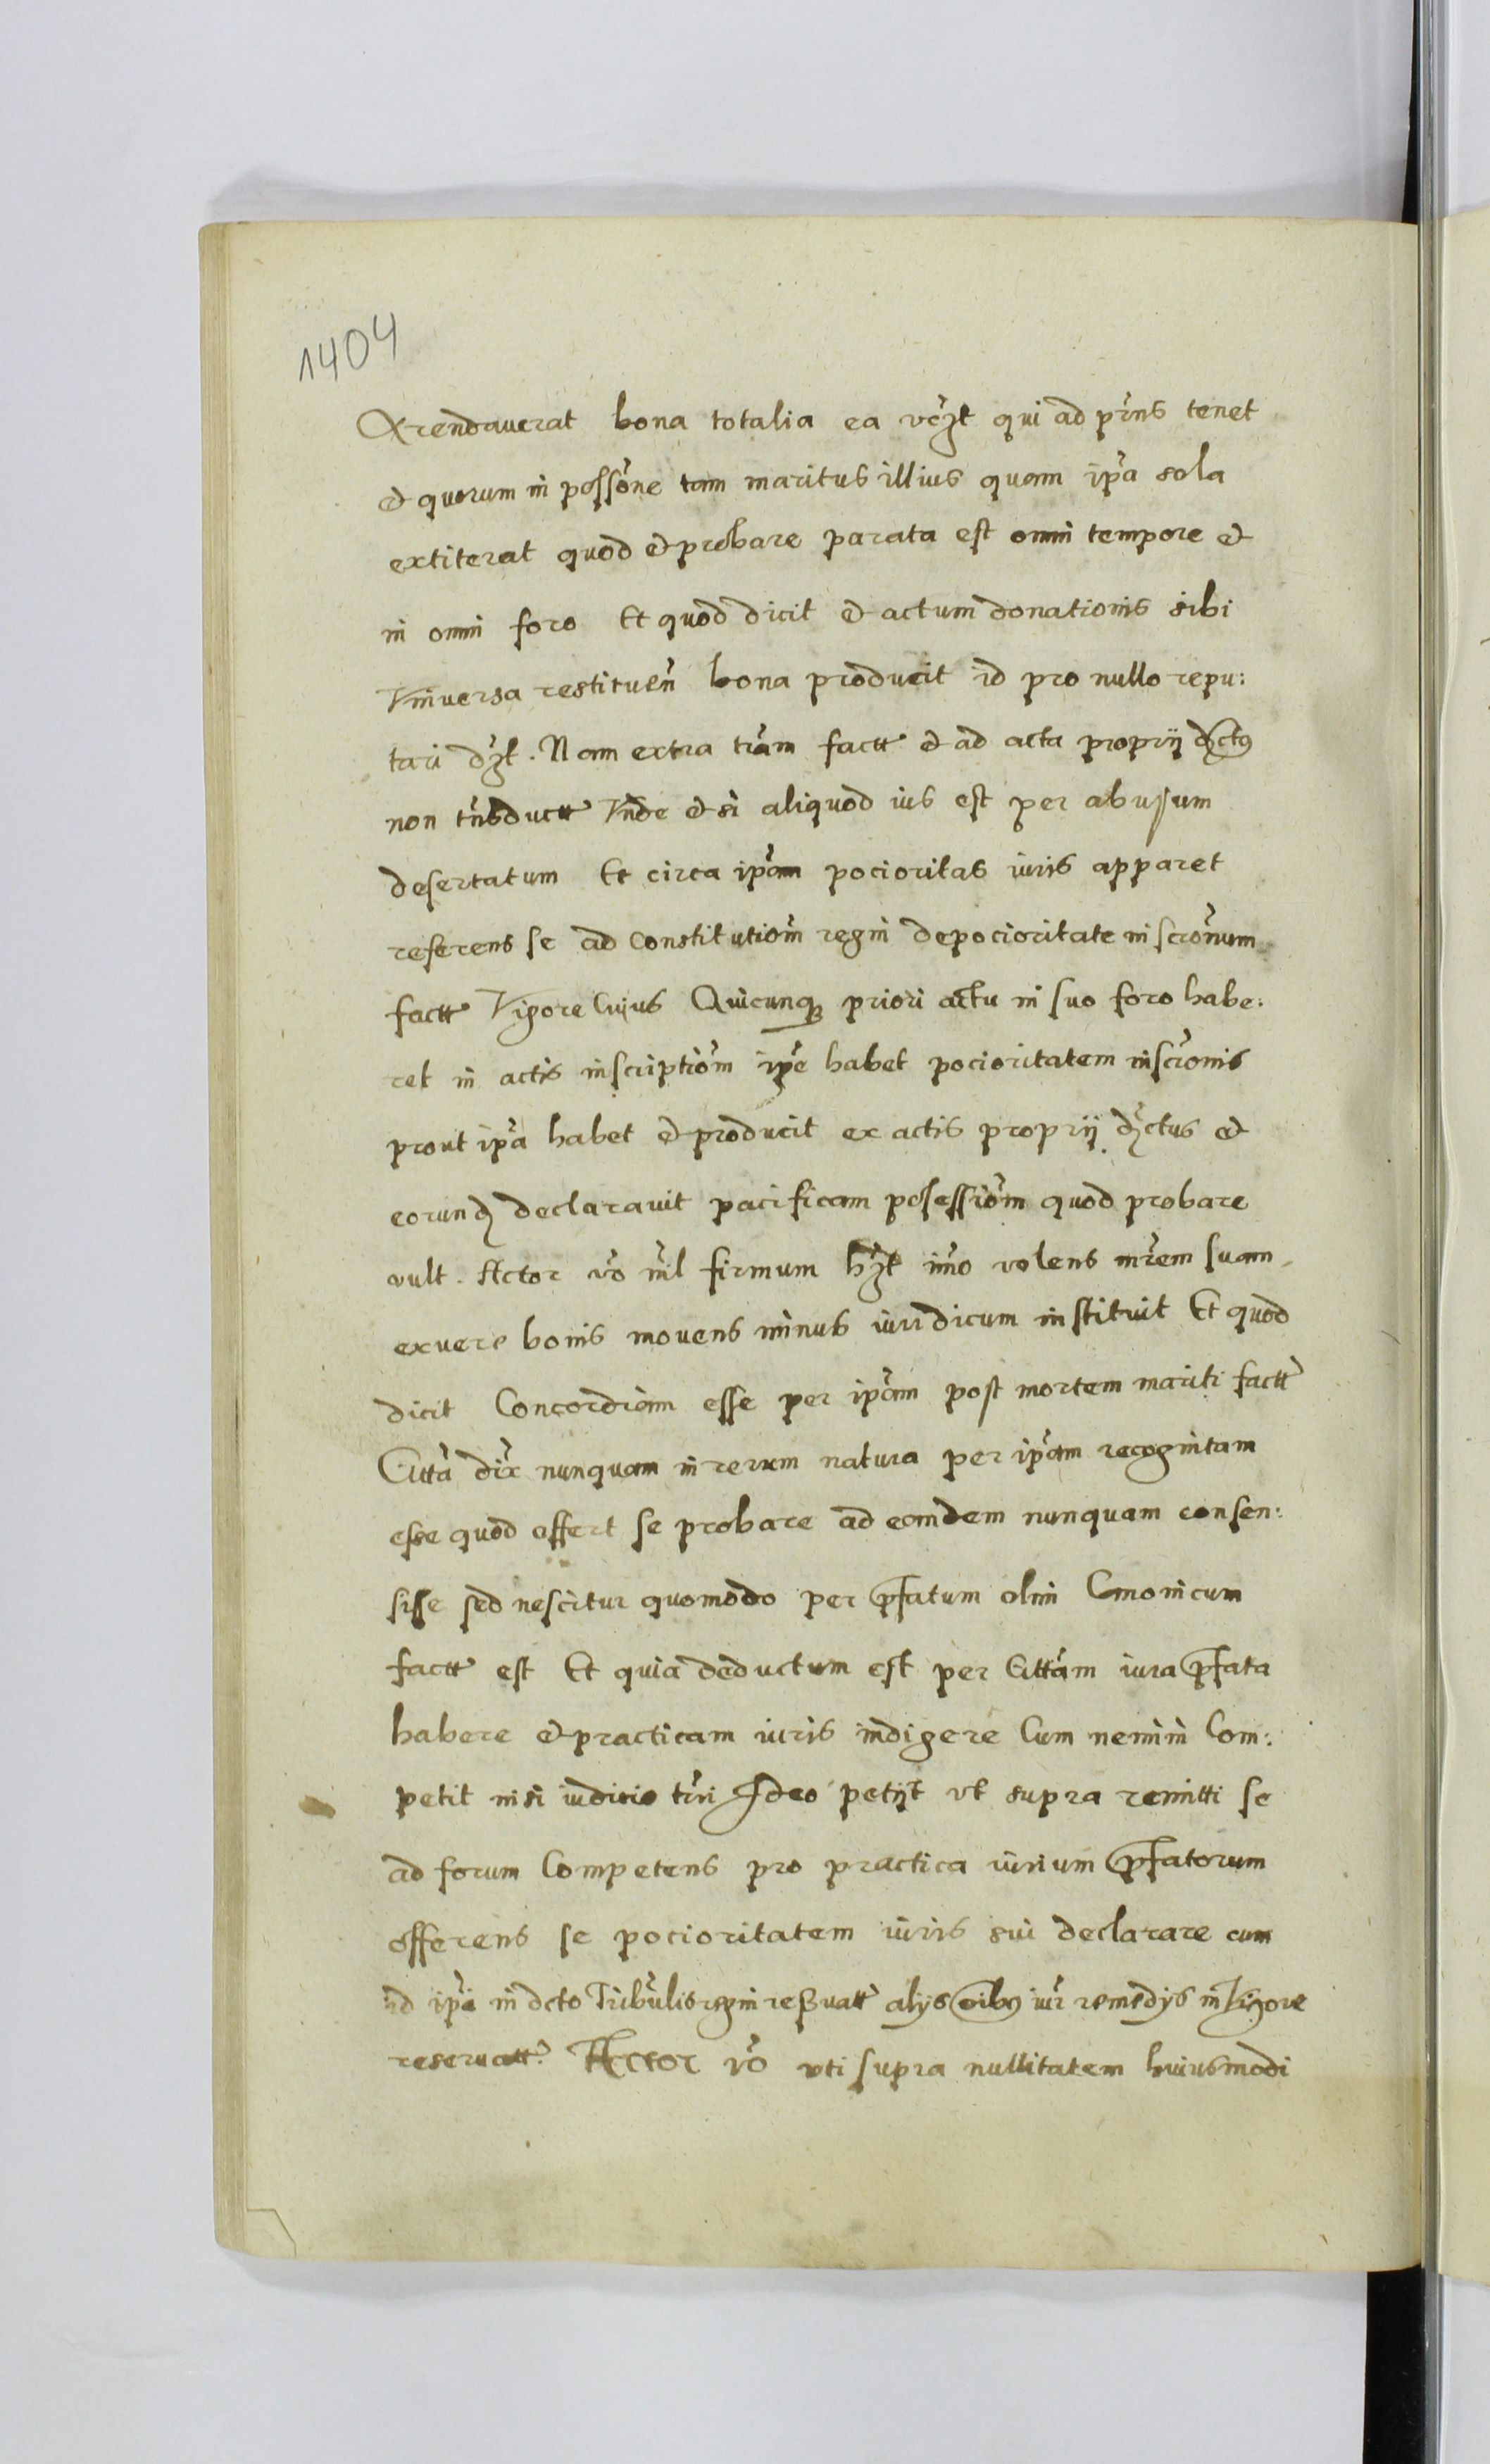 1404
Arendauerat bona totalia ea vdzt qui ad pñs tenet
et quorum in possõne tam maritus illius quam ip̃a sola
extiterat quod et probare parata est omni tempore et
in omni foro Et quod dicit et actum donationis sibi
Vniuersa restituen̄ bona producit id pro nullo repu:
tari dz̃t. Nam extra trãm factt et ad acta proprij dz̃ctꝰ
non tñsductt Vnde et si aliquod ius est per abusum
desertatum Et circa ip̃am pocioritas iuris apparet
referens se ad Constitutiõm regni de pocioritate inscrõnum
factt Vigore Cuius Quicunqꝫ priori actu in suo foro habe:
ret in actis inscriptiõm ip̃e habet pocioritatem inscrõnis
prout ip̃a habet et producit ex actis proprij dz̃ctus et
eorund declarauit pacificam posessiõm quod probare
vult. Actor vo nil firmum hz̃t imo volens mr̃em suam
exuere bonis mouens minus iuridicum instituit Et quod
dicit Concordiam esse per ip̃am post mortem mariti factt
Citta dix̃ nunquam in rerum natura per ip̃am recognitam
esse quod offert se probare ad eamdem nunquam consen:
sisse sed nescitur quomodo per p̃fatum olim Canonicum
factt est Et quia deductum est per Cittam iura p̃fata
habere et practicam iuris indigere Cum nemini Com:
petit nisi iudicio trri Ideo petijt vt supra remitti se
ad forum Competens pro practica iurium p̃fatorum
offerens se pocioritatem iuris sui declarare cum
id ip̃i in dcto Tribũlis regni reßuatt alijs oĩbꝰ iur̃ remedijs in Vigore
reseruatt. Actor vo vti supra nullitatem huiusmodi